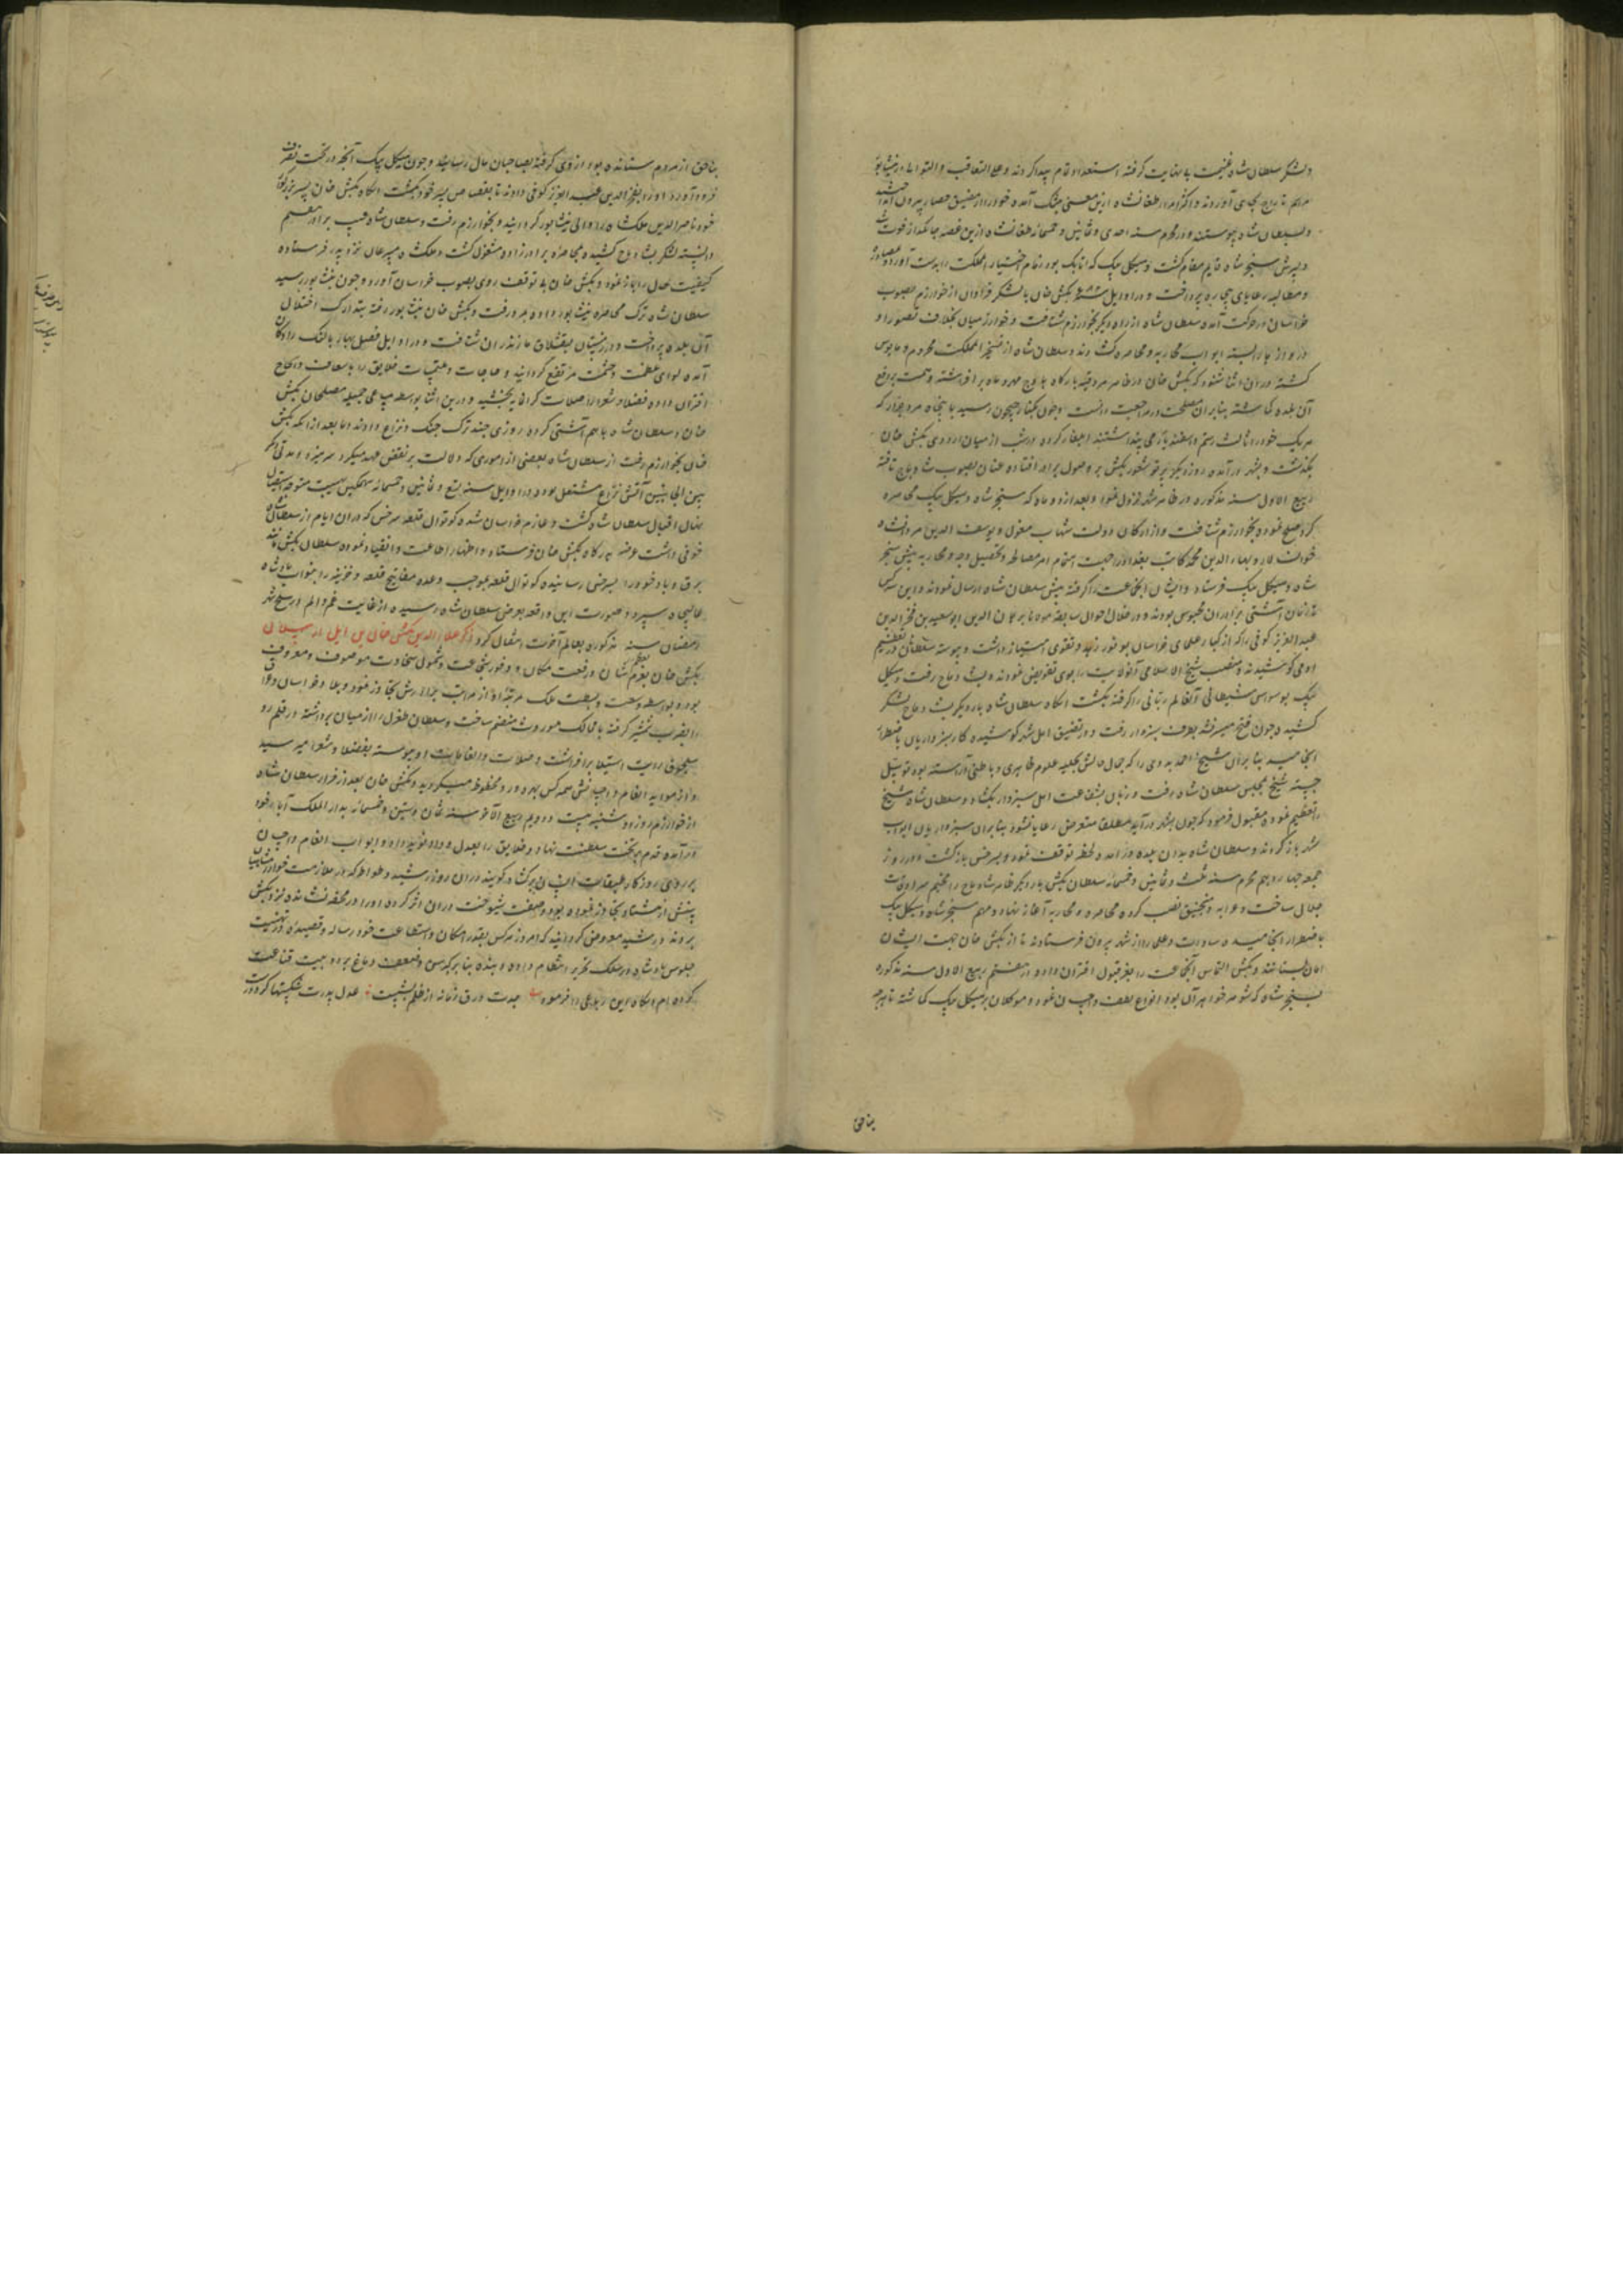 ولشکر سلطان شاه غنیمت بی نهایت گرفته استعداد تمام پیدا کردند و علی التعاقب والتوالی در نیشابور
مراسم تاراج بجای آوردند و اکثر امراء طغانشاه ازین معنی بتنگ آمده خود را از مضیق حصار بیرون
و بسلطان شاه پیوستند و در محرم سنه احدی و ثمانین و خمسمائه طغانشاه ازین غصه
و پسرش سنجر شاه قایم مقام گشت و منکلی بیک که اتابک بود زمام اختیار مملکت را بدست آورد
و مطالبه رعایای بیچاره پرداخت و در اوایل سنه تکش خان با لشکر فراوان از خوارزم بصوب
خراسان در حرکت آمده سلطان شاه از راه دیگر بخوارزم شتافت و خوارزمیان بخلاف تصور او
دروازها بسته ابواب محاربه و محاصره گشادند و سلطان شاه از تسخیر آن مملکت محروم و مایوس
گشته در آن اثنا شنود که تکش خان در ظاهر مرو قبه بارگاه باوج مهر و ماه برافراشته و همت بر فتح
آن بلده گماشته بنابر آن مصلحت در مراجعت دانست و چون بکنار جیحون رسید با پنجاه مرد جرار که
هر یک خود را ثالث رستم و اسفندیار می پنداشتند ایلغار کرده در شب از میان اردوی تکش خان
بگذشت و بشهر در آمده روز دیگر پرتو شعور تکش بر وصول برادر افتاده عنان بصوب شادیاخ تافته
ربیع الاول سنه مذکوره در ظاهر شهر نزول نمود و بعد از دو ماه که سنجر شاه و منکلی بیک محاصره
کرد صلح نموده بخوارزم شتافت و از ارکان دولت شهاب الدین مسعود و سیف الدین مردانشاه
خوان سالار و بهاء الدین محمد کاتب بغدادی را جهت اتمام امر مصالحه و تحصیل وجوه پیش سنجر
شاه و منکلی بیک فرستاد و ایشان آن جماعت را گرفته پیش سلطان شاه ارسال نمودند و این سه کس
تا زمان آشتی برادران محبوس بودند و در خلال احوال سابقه مولانا برهان الدین ابوسعید بن فخر الدین
عبد العزیز کوفی را که از کبار علمای خراسان بوفور زهد و تقوی امتیاز داشت و پیوسته سلاطین در تعظیم
او می کوشیدند و منصب شیخ الاسلامی آن ولایت را بوی تفویض نمودند بشادیاخ رفت و منکلی
بیک بوسواس شیطانی آن عالم ربانی را گرفته بکشت آنگاه سلطان شاه بار دیگر بشادیاخ لشکر
کشید و چون فتح میسر نشد بطرف سبزوار رفت و در تضییق اهل شهر کوشیده کار سبزواریان باضطرار
انجامید بنابر آن شیخ احمد بدیلی را که جمال حالش بحلیه علوم ظاهری و باطنی آراسته بود توسل
جسته شیخ بمجلس سلطان شاه رفت و زبان بشفاعت اهل سبزوار بگشاد و سلطان شاه شیخ
را تعظیم نموده قبول فرمود که چون بشهر در آید مطلقا متعرض رعایا نشود بنابر آن سبزواریان ابواب
شهر باز کردند و سلطان شاه بدان بلده در آمده لحظه توقف نمود و بسرخس بازگشت و در روز
جمعه چهاردهم محرم سنه ثلث و ثمانین و خمسمائه سلطان تکش بار دیگر ظاهر شادیاخ را مخیم سرادقات
جلال ساخت و عراده و منجنیق نصب کرده محاصره و محاربه آغاز نهاد و مهم سنجر شاه و منکلی بیک
باضطرار انجامیده سادات و علما را از شهر بیرون فرستادند تا از تکش خان جهت ایشان
امان طلبیدند و تکش التماس آن جماعت را بعز قبول اقتران داد و در هفتم ربیع الاول سنه مذکوره
سنجر شاه که شوهر خواهر آن بود انواع لطف و احسان نمود و موکلان بر منکلی بیک گماشته تا هرچه
بناحق
بناحق از مردم ستانده بود از وی گرفته بصاحبان مال رسانید و چون منکلی بیک آنچه در تحت تصرف
فرود آورد او را بفخر الدین عبد العزیز کوفی دادند تا بقصاص پسر خود بکشت آنگاه تکش خان پسر بزرگتر
خود ناصر الدین ملکشاه را والی نیشابور گردانید و بخوارزم رفت و سلطان شاه غیبت برادر مغتنم
دانسته لشکر بشادیاخ کشیده بمحاصره برادرزاده مشغول گشت و ملکشاه مسرعان نزد پدر فرستاده
کیفیت حال را باز نمود و تکش خان بی توقف روی بصوب خراسان آورد و چون بنیشابور رسید
سلطان شاه ترک محاصره نیشابور داده بمرو رفت و تکش خان نیشابور رفته بتدارک اختلال
آن بلده پرداخت و در زمستان بقشلاق مازندران شتافت و در اوایل فصل بهار بالنک رادکان
آمده لوای عظمت و حشمت مرتفع گردانید و حاجات و ملتمسات خلایق را باسعاف و انجاح
اقتران داده فضلا و شعرا را صلات گرانمایه بخشید و درین اثنا بواسطه مساعی جمیله مصلحان تکش
خان و سلطان شاه با هم آشتی کرده روزی چند ترک جنگ و نزاع دادند و بعد از آنکه تکش
خان بخوارزم رفت از سلطان شاه بعضی از اموری که دلالت بر نقض عهد میکرد سر میزد و مدتی دیگر
بین الجانبین آتش نزاع مشتعل بود و در اوایل سنه تسع و ثمانین و خمسمائه
نهال اقبال سلطان شاه گشت و عازم خراسان شده کوتوال قلعه سرخس که در آن ایام از سلطان شاه
خوفی داشت عرضه بدرگاه تکش خان فرستاد و اظهار اطاعت و انقیاد نموده سلطان تکش مانند
برق و باد خود را بسرخس رسانیده کوتوال قلعه بموجب وعده مفاتیح قلعه و خزینه را بنواب پادشاه
عالیجاه سپرد و صورت این واقعه بعرض سلطان شاه رسیده از غایت غم و الم در سلخ شهر
رمضان سنه مذکوره بعالم آخرت انتقال کرد ذکر علاء الدین تکش خان بن ایل ارسلان
تکش خان بعظم شان و رفعت مکان و وفور شجاعت و شمول سخاوت موصوف و معروف
بود و بواسطه وسعت و بسطت ملک مرتبه او از مراتب برادرش تجاوز نمود و بلاد خراسان و عراق
را بضرب شمشیر گرفته با ممالک موروث منضم ساخت و سلطان طغرل را از میان برداشته در قلمرو
سلجوقی رایت استیلا برافراشت و صلات و انعامات او پیوسته بفضلا و شعرا میرسید
و از مواید انعام و احسانش همه کس بهره ور و محظوظ میگردید و تکش خان بعد از فرار سلطان شاه
از خوارزم روز دوشنبه بیست و دویم ربیع الآخر سنه ثمان و ستین و خمسمائه بدار الملک آباء خود
در آمده قدم بر تخت سلطنت نهاد و خلایق را بعدل و داد نوید داده ابواب انعام و احسان
بر روی روزگار طبقات انسان برگشاد گویند در آن روز رشید وطواط که
سنش از هشتاد تجاوز نموده بود و ضعف شیخوخت در آن اثر کرده او را در محفه نشانده نزد تکش
بردند و رشید معروض گردانید که امروز هر کس بقدر امکان و استطاعت خود رساله و قصیده در تهنیت
جلوس پادشاه در سلک تحریر انتظام داده و بنده بنابر کبر سن و ضعف دماغ بر دو بیت قناعت
کرده ام آنگاه این رباعی را فرمود جدت ورق زمانه از ظلم بشست عدل پدرت شکستها کرد درست